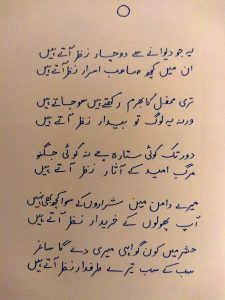 یہ جو دیوانے سے دو چار نظر آتے ہیں
ان میں کچھ صاحب اسرار نظر آتے ہیں
تری محفل کا بھرم رکھتے ہیں سو جاتے ہیں
ورنہ یہ لوگ تو بیدار نظر آتے ہیں
دور تک کوئی ستارہ ہے نہ کوئی جگنو
مرگ امید کے آثار نظر آتے ہیں
میرے دامن میں شراروں کے سوا کچھ بھی نہیں
آپ پھولوں کے خریدار نظر آتے ہیں
حشر میں کون گواہی میری دے گا ساغر
سب کے سب تیرے طرفدار نظر آتے ہیں